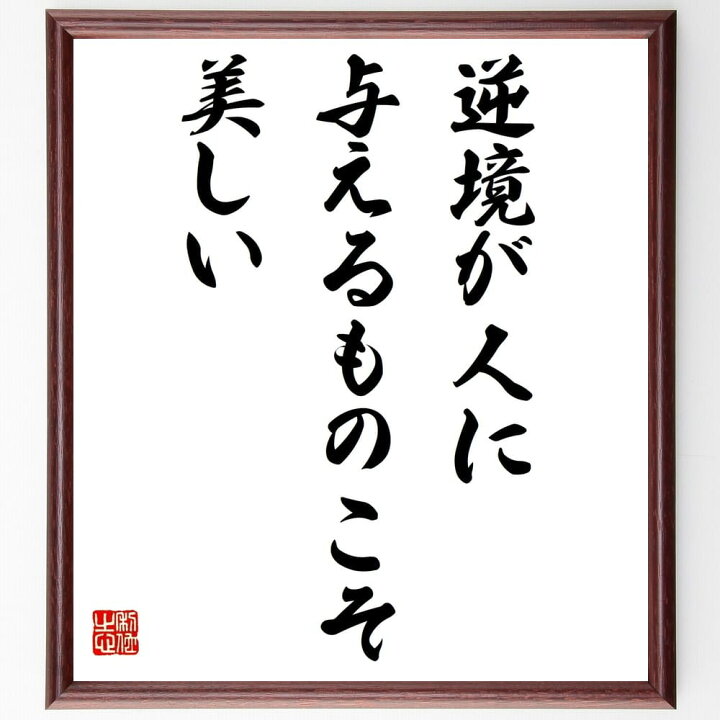 逆境が人に
与えるものこそ
美しい